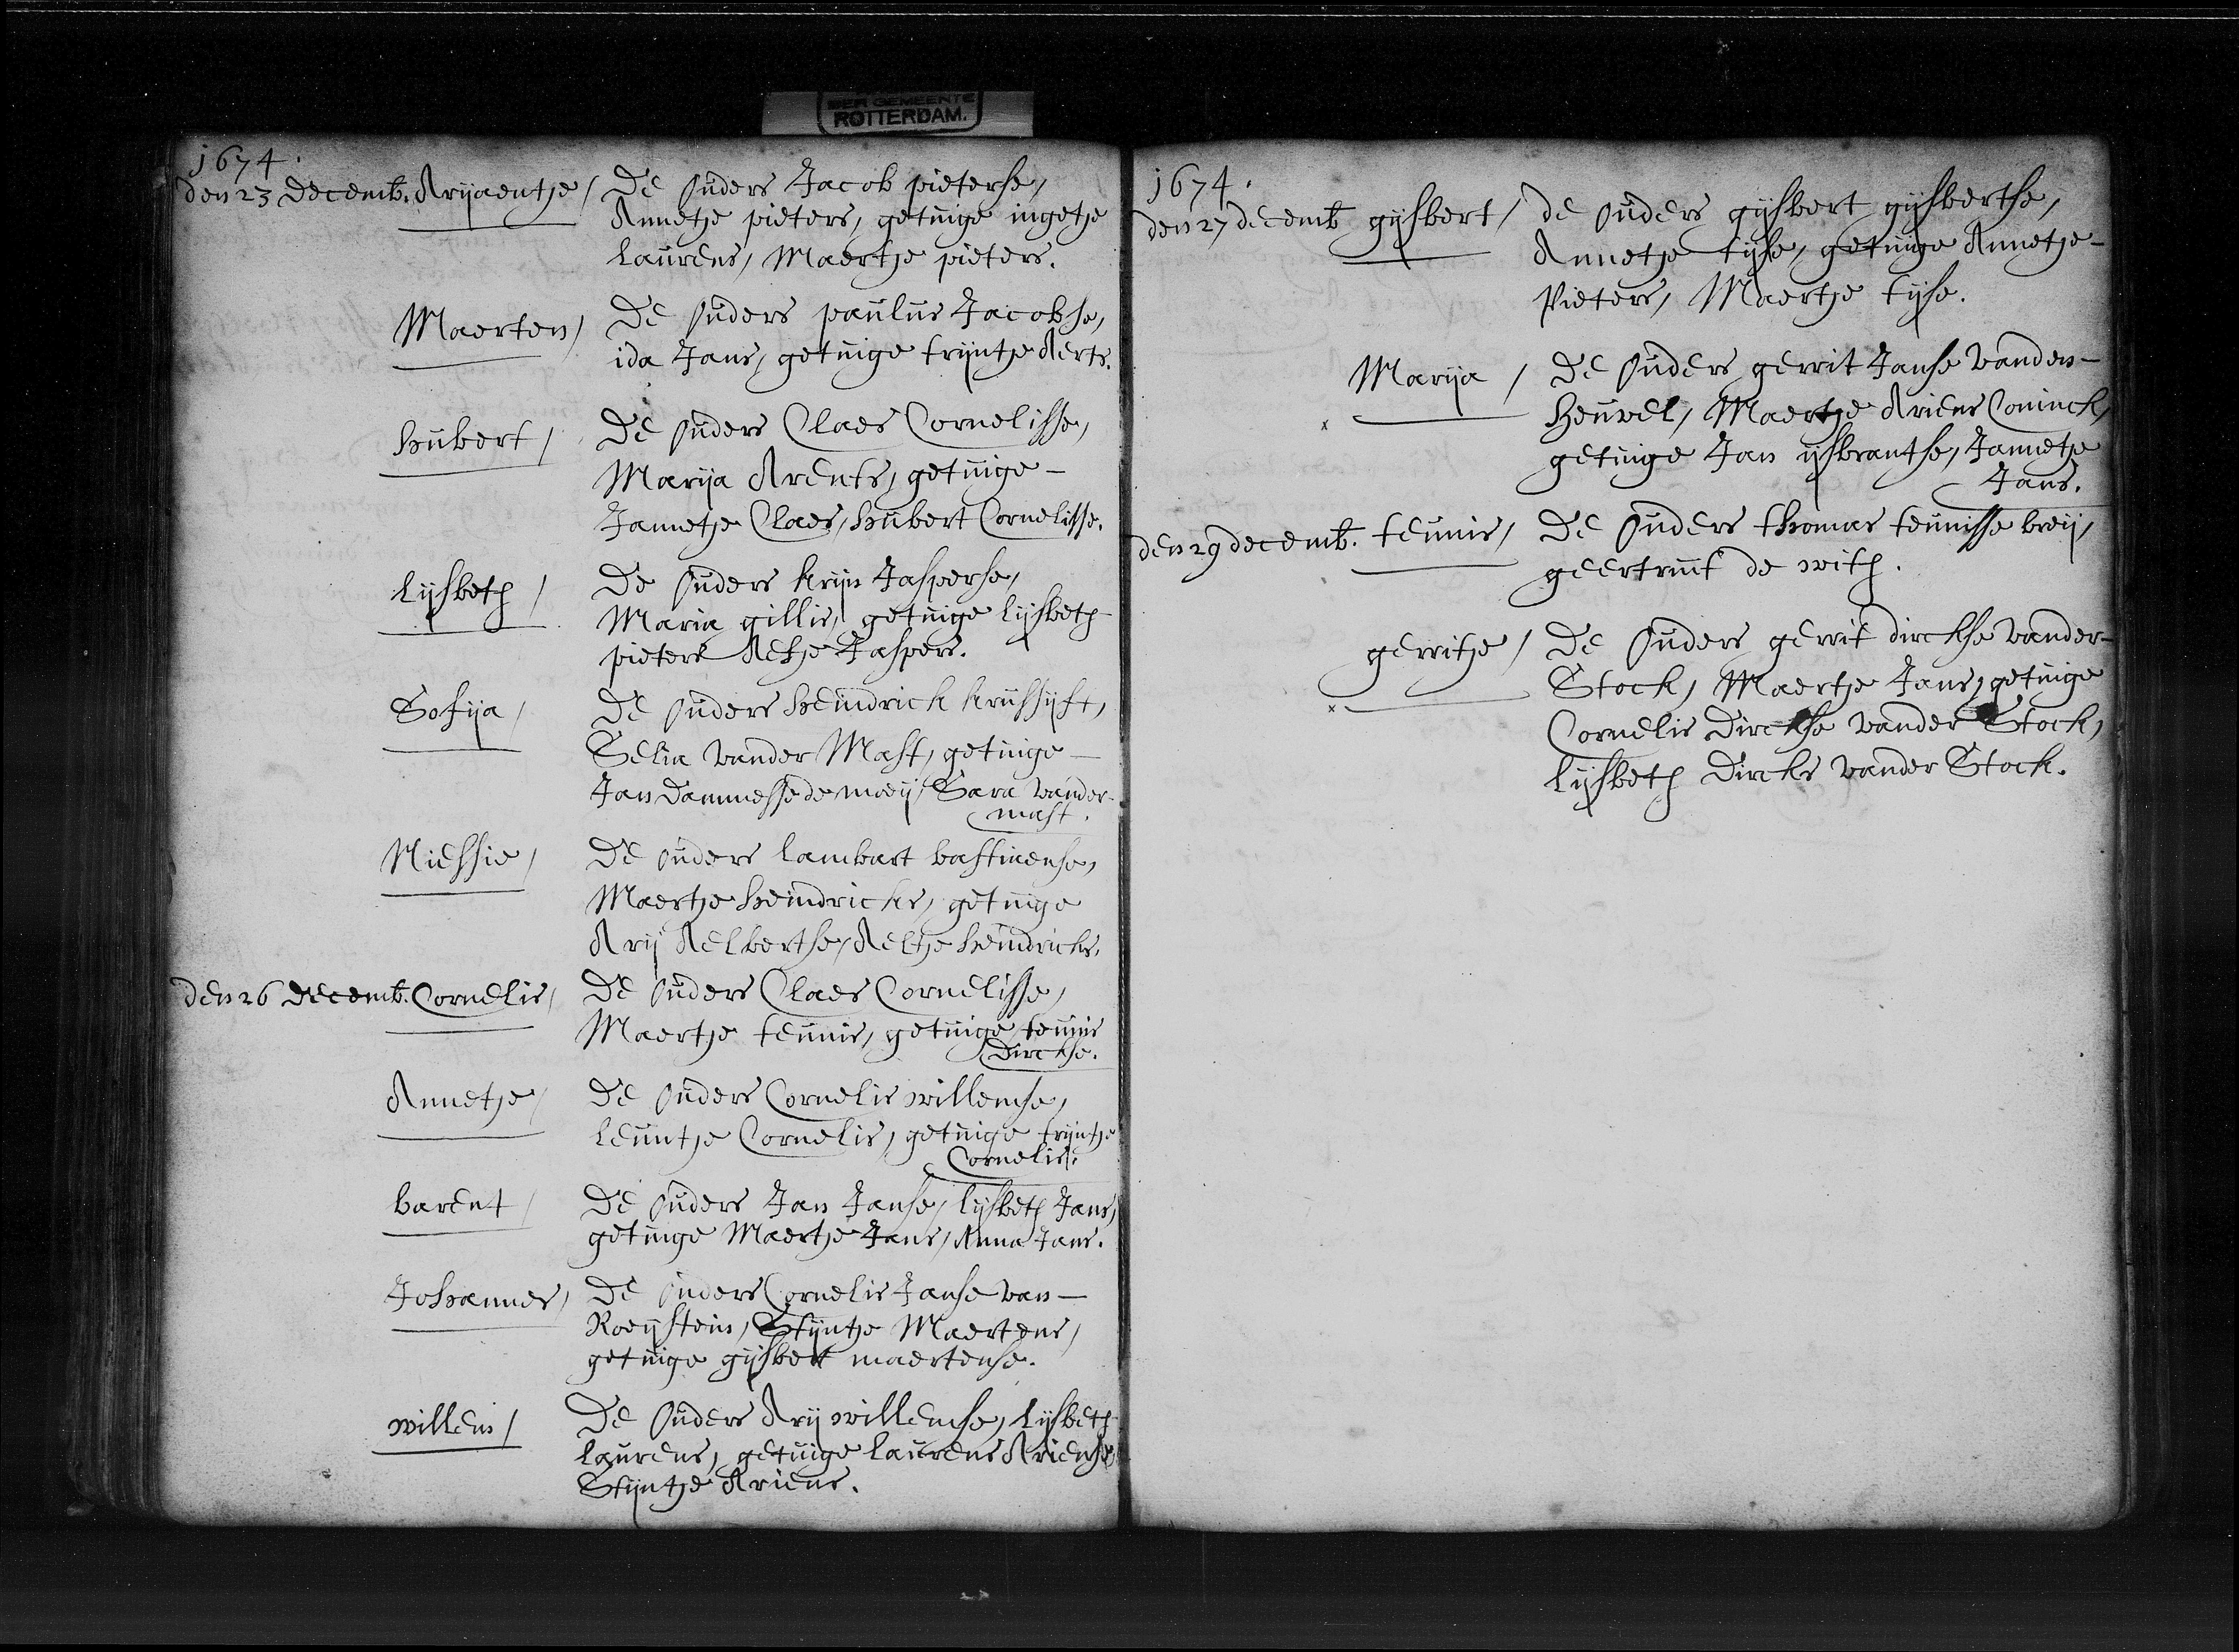 DER GEMEENTE
ROTTERDAM.
1674.
den 23 decemb. Arijaentje / De Ouders Jacob pieterse,
Annetje pieters, getuige ingetje
Laurens, Maertje pieters.
Maerten / De Ouders paulus Jacobse,
ida Jans, getuige trijntje Aerts.
hubert / De Ouders Claes Cornelisse,
Marija Arents, getuige –
Jannetje Claes, hubert Cornelisse.
lijsbeth / De Ouders krijn Jasperse,
Maria gillis, getuige lijsbeth
pieters Aeltje Jaspers.
Sofija / De Ouders heindrick
Selia vander Mast, getuige –
Jan dammesse de moeij, Sara vander-
mast.
Niessie / De Ouders lambart bastiaense,
Maertje heindricks, getuige
Arij Aelbertse, Aeltje heindricks.
den 26 decemb. Cornelis / De Ouders Claes Cornelisse,
Maertje teunis, getuige teunis
Dirckse.
Annetje / De Ouders Cornelis willemse,
leuntje Cornelis, getuige trijntje
Cornelis.
barent / De Ouders Jan Janse, lijsbeth Jans,
getuige Maertje Jans, Anna Jans.
Johannes / De Ouders Cornelis Janse van –
Roeijstein, Stijntje Maertens,
getuige gijsbert maertense.
willem / De Ouders Arij willemse, lijsbeth
laurens, getuige laurens Ariense
Stijntje Ariens.
1674.
den 27 decemb gijsbert / de Ouders gijsbert gijsbertse,
Annetje tijse, getuige Annetje –
Pieters, Maertje tijse.
Marija / De Ouders gerrit Janse vanden –
heuvel, Maertje Ariens Coninck,
getuige Jan ijsbrantse, Jannetje
Jans.
den 29 decemb. teunis / De Ouders thomas teunisse breij,
geertruit de with.
gerritje / De Ouders gerrit dirckse vander –
Stock, Maertje Jans, getuige
Cornelis Dirckse vander Stock,
lijsbeth Dircks vander Stock.